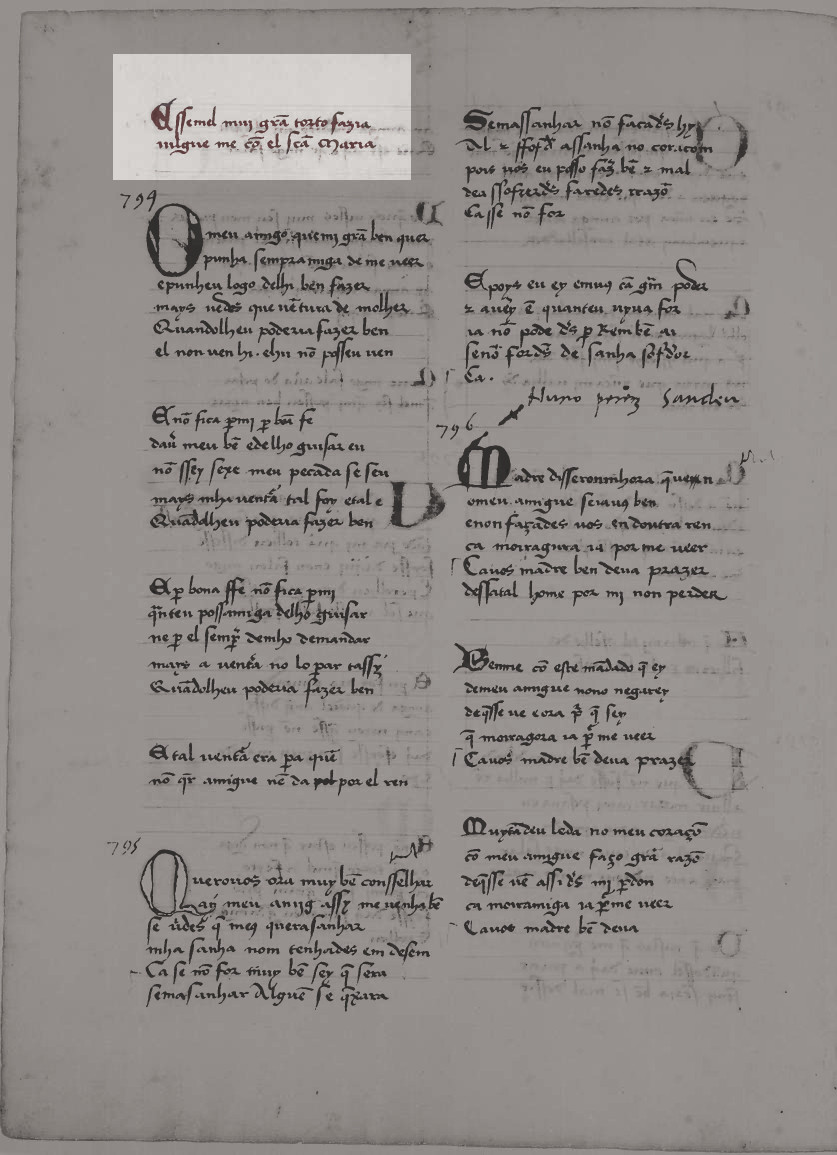 E ssemel mui grã torto fazia
nigue me cõ el scã Maria
794
O meu amigo que mi grã ben quer
punha sempramiga de me veer
epunheu logo delhi ben fazer
mays uedes que uẽtura de molher
Quandolheu poderia fazer ben
el non uen hi . ehu nõ posseu uen
E nõ fica p mi p bõa fe
dau meu bẽ edelho guisar eu
nõ ssey sexe meu pecada se seu
mays mha uentã tal foy etal e
Quãdolheu poderia fazer ben
E p bona ffe nõ fica p mi
q̃nteu possamiga delho guisar
ne p el semp̃ demho demandar
mays a uentã no lo par tassy
Quãdolheu poderia fazer ben
E tal uentã era pa quẽ
nõ qr amigue nẽ da por el ren
795
Querouos ora muy bẽ consselhar
ay meu amig assy me uenha bẽ
se uedes q̃ me querasanhar
mha sanha nom tenhades em desem
Ca se nõ for muy bẽ sey q̃ sera
semasanhar Alguẽ se q̃xara
Semassanhar nõ facades hy
Al assanha no coraçom
pois uos eu posso faz bẽ z mal
dea ssofrerdes faredes rrazõ
Ca sse nõ for
E poys eu ey emuos cã grm poder
z auey ẽ quanteu uyua for
ia nõ pode ds p Rem bẽ au
senõ fords de sanha sofdor
Ca .
Nuno perez Sandeu
796
Madre disseronmhora que uen
omeu amigue seiauus ben
enon façades uos endoutra ren
ca moiragura ia por me ueer
Cauos madre ben deua prazer
dessatal home por mi non perder
Venme cõ este mãdado q̃ ey
demeu amigue nono negarey
deq̃sse ue eora p̃ q̃ sey
q̃ moiragora ia p̃ me ueer
Cauos madre bẽ deua prazer
Muytãdeu leda no meu coraçõ
cõ meu amigue faço grã razõ
deq̃sse uẽ assi ds mi pdon
ca moiramiga ia p me ueer
Cauos madre bẽ deua